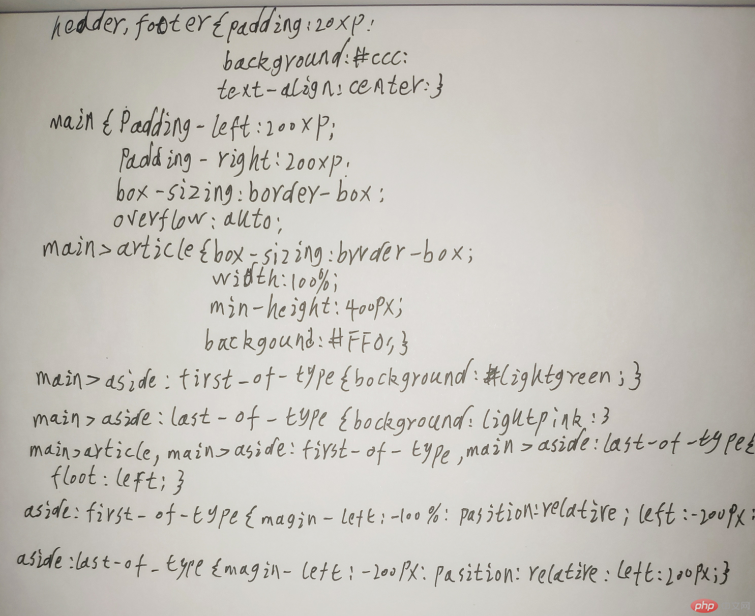 hedder, footer{padding:20xp:
background:#ccc:
text-align:center:}
main{Padding-left:200xp;
Padding-right:200xp.
box-sizing:border-box;
overflow:auto;
main>article{box-sizing:bvrder-box;
width:100%;
min-height:400px;
backgound:#FF0;}
main>aside:first-of-type{bockground:#lightgreen;}
main>aside:last-of-type{bockground:lightpink:}
main>article,main>aside:first-of-type,main>aside:last-of-type{
floot:left;}
aside:first-of-type{magin-left:-100%:pasition:relative;left:-200px:
aside:last-of-type{magin-left:-200px:pasition:relative:left:200px;}
php